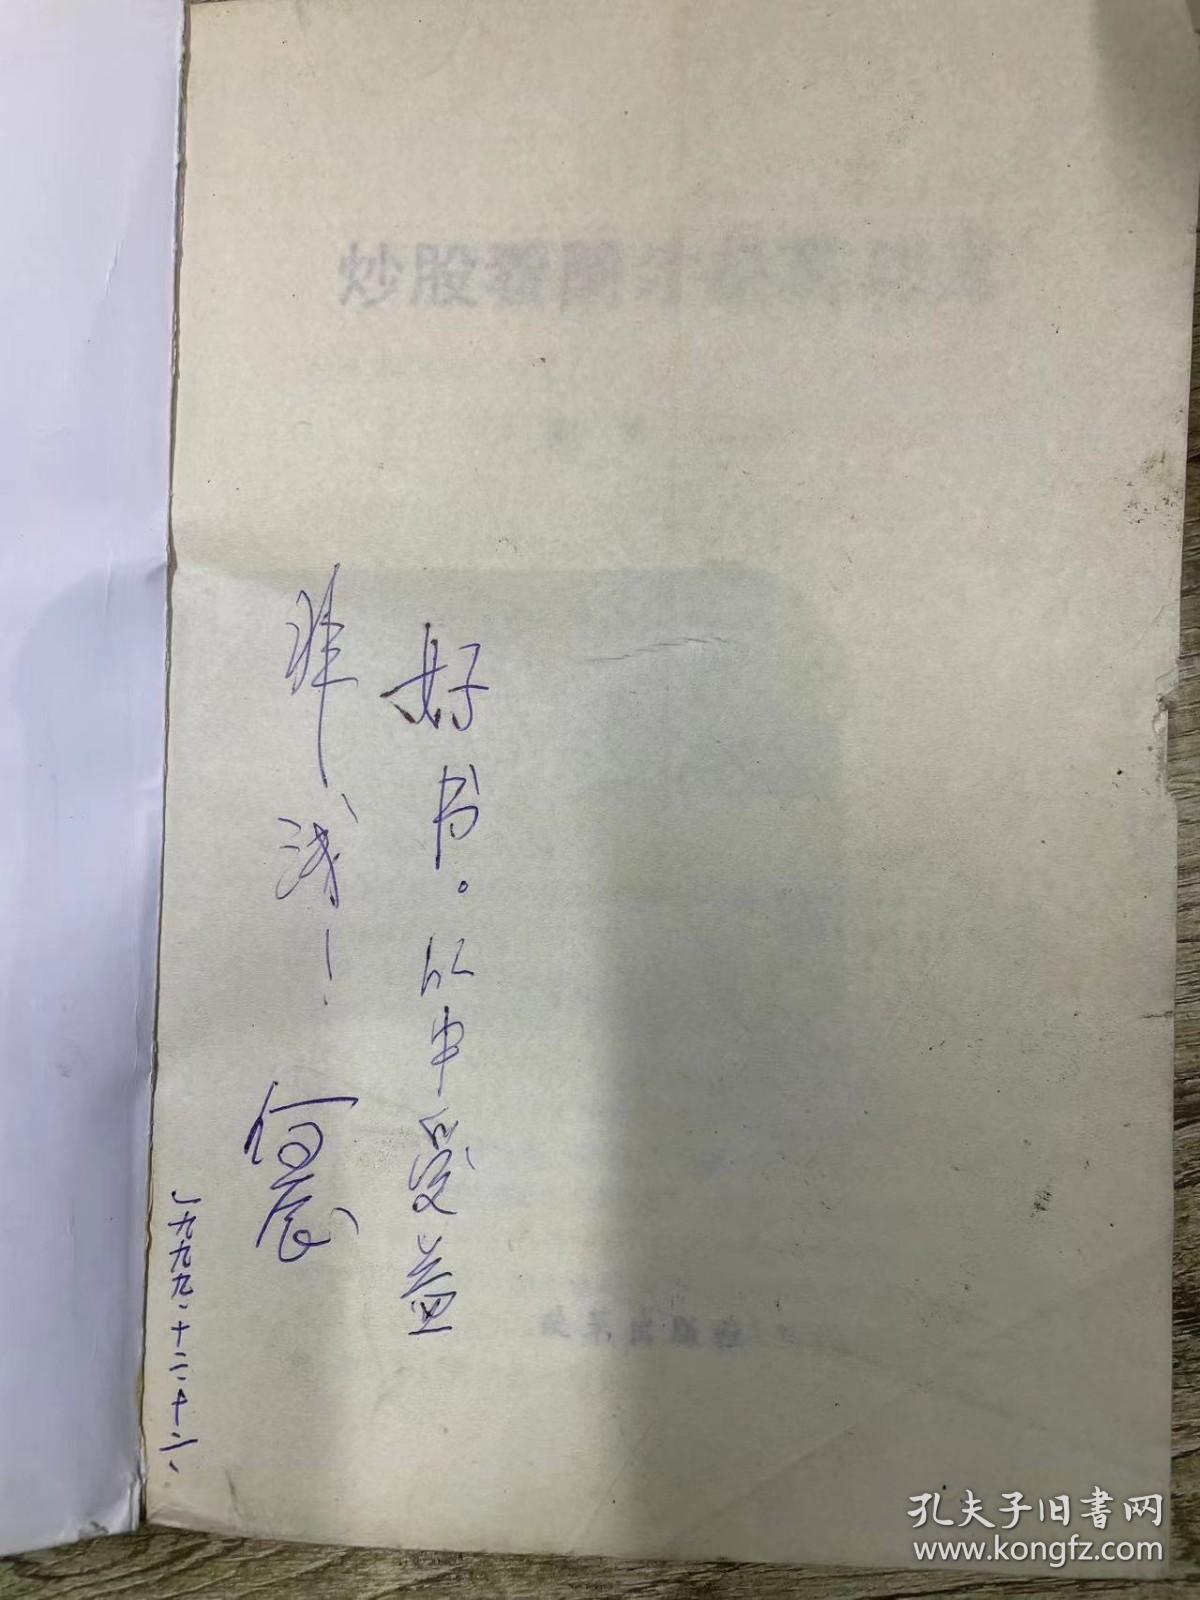 好书。从中受益
非浅！
何宸
一九九九.十二.十二.
炒股看
孔夫子旧书网
www.kongfz.com